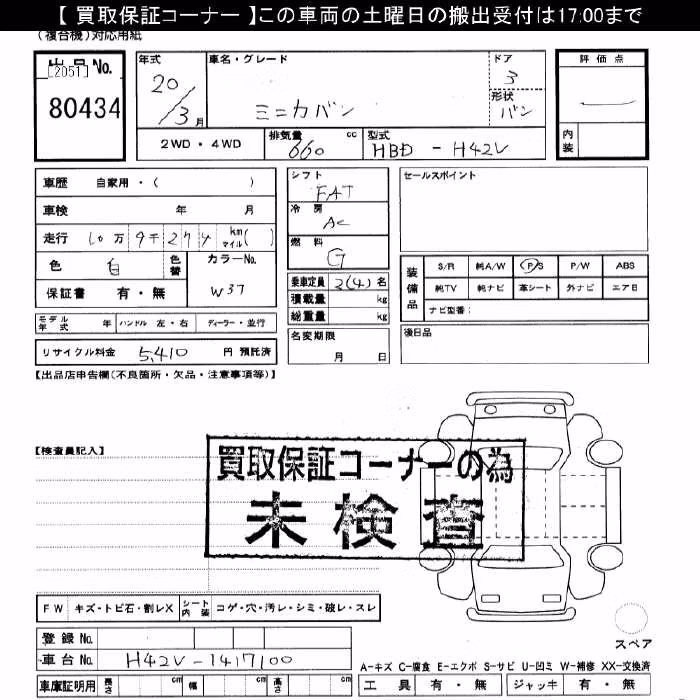 【 買取保証コーナー 】この車両の土曜日の搬出受付は17:00まで
(複合機)対応用紙
出品No.
[2051]
80434
年式
20/3月
車名・グレード
ミニカバン
ドア
3
形状
バン
評価点
内装
2WD ・ 4WD
排気量 660 cc
型式 HBD - H42V
車歴 自家用・( )
車検 年 月
走行 10万 9千 2 7 4 km マイル( )
色 白 色替
カラーNo.
W37
保証書 有・無
シフト
FAT
冷房
AC
燃料
G
乗車定員 2(4)名
積載量 kg
総重量 kg
名変期限
月 日
セールスポイント
装備品
S/R 純A/W P/S P/W ABS
純TV 純ナビ 革シート 外ナビ エアB
ナビ型番:
後日品
モデル年式 年 ハンドル 左・右 ディーラー・並行
リサイクル料金 5,410 円 預託済
【出品店申告欄(不良箇所・欠品・注意事項等)】
【検査員記入】
買取保証コーナーの為
未検査
FW キズ・トビ石・割レX シート内装 コゲ・穴・汚レ・シミ・破レ・スレ
登録No.
車台No. H42V-1417100
車庫証明用 長さ cm 幅 cm 高さ cm
スペア
A-キズ C-腐食 E-エクボ S-サビ U-凹ミ W-補修 XX-交換済
工具 有・無 ジャッキ 有・無